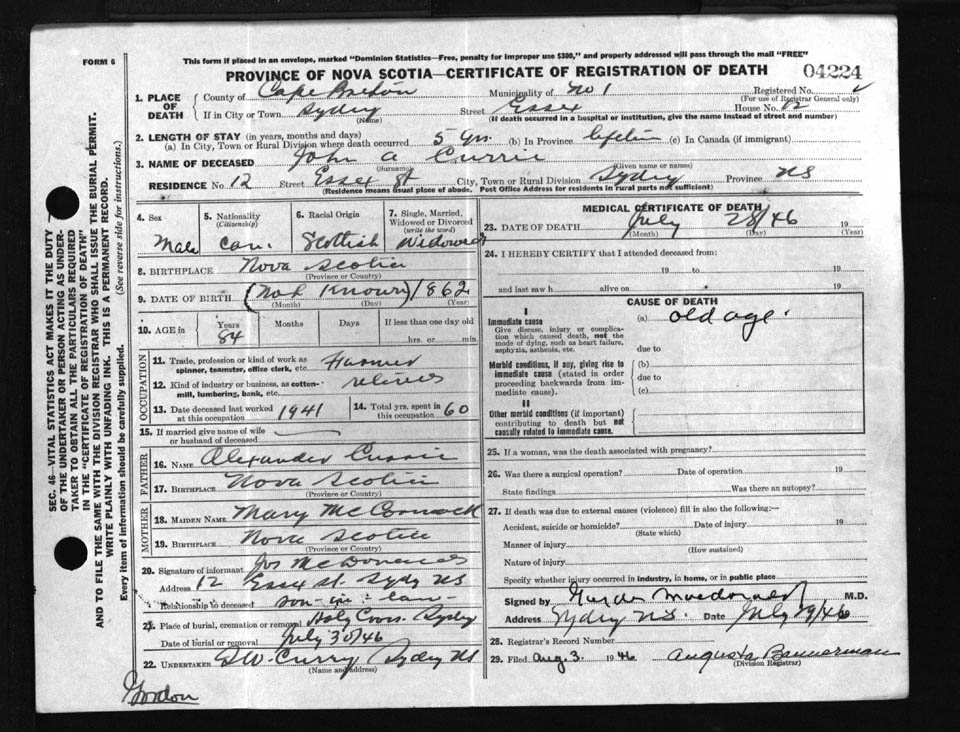 FORM 6
This form if placed in an envelope, marked "Dominion Statistics—Free, penalty for improper use $300," and properly addressed will pass through the mail "FREE"
PROVINCE OF NOVA SCOTIA—CERTIFICATE OF REGISTRATION OF DEATH 04224
1. PLACE OF DEATH County of Cape Breton Municipality of No 1 Registered No.
(For use of Registrar General only)
If in City or Town Sydney Street Essex House No. 12
(Name) (If death occurred in a hospital or institution, give the name instead of street and number)
2. LENGTH OF STAY (in years, months and days)
(a) In City, Town or Rural Division where death occurred 5 yrs. (b) In Province lifetim (c) In Canada (if immigrant)
3. NAME OF DECEASED John A Currie
(Surname) (Given name or names)
RESIDENCE No 12 Street Essex St City, Town or Rural Division Sydney Province NS
(Residence means usual place of abode. Post Office Address for residents in rural parts not sufficient)
4. Sex 5. Nationality (Citizenship) 6. Racial Origin 7. Single, Married, Widowed or Divorced (write the word)
Male Can. Scottish Widowed
8. BIRTHPLACE Nova Scotia
(Province or Country)
9. DATE OF BIRTH (Not Known) 1862
(Month) (Day) (Year)
10. AGE in Years Months Days If less than one day old
84 hrs. or min.
OCCUPATION
11. Trade, profession or kind of work as spinner, teamster, office clerk, etc. Farmer
12. Kind of industry or business, as cotton-mill, lumbering, bank, etc. retired
13. Date deceased last worked at this occupation 1941 14. Total yrs. spent in this occupation 60
15. If married give name of wife or husband of deceased
FATHER
16. NAME Alexander Currie
17. BIRTHPLACE Nova Scotia
(Province or Country)
MOTHER
18. MAIDEN NAME Mary McCormack
19. BIRTHPLACE Nova Scotia
(Province or Country)
20. Signature of informant Jos McDonald
Address 12 Essex St. Sydney NS
Relationship to deceased son-in-law
21. Place of burial, cremation or removal Holy Cross Sydney
Date of burial or removal July 30/46
22. UNDERTAKER G.W. Curry Sydney NS
(Name and address)
Gordon
MEDICAL CERTIFICATE OF DEATH
23. DATE OF DEATH July 28/46 19
(Month) (Day) (Year)
24. I HEREBY CERTIFY that I attended deceased from:
19 to 19
and last saw h alive on 19
CAUSE OF DEATH
I
Immediate cause (a) old age.
Give disease, injury or complication which caused death, not the mode of dying, such as heart failure, asphyxia, asthenia, etc.
due to
Morbid conditions, if any, giving rise to immediate cause (stated in order proceeding backwards from immediate cause).
(b)
due to
(c)
II
Other morbid conditions (if important) contributing to death but not causally related to immediate cause.
25. If a woman, was the death associated with pregnancy?
26. Was there a surgical operation? Date of operation 19
State findings Was there an autopsy?
27. If death was due to external causes (violence) fill in also the following:—
Accident, suicide or homicide? Date of injury 19
(State which)
Manner of injury
(How sustained)
Nature of injury
Specify whether injury occurred in industry, in home, or in public place
Signed by Macdonald M.D.
Address Sydney N.S. Date July 29/46
28. Registrar's Record Number
29. Filed Aug. 3. 1946 Augusta Bannerman
(Division Registrar)
SEC. 46—VITAL STATISTICS ACT MAKES IT THE DUTY
OF THE UNDERTAKER OR PERSON ACTING AS UNDER-
TAKER TO OBTAIN ALL THE PARTICULARS REQUIRED
IN THE "CERTIFICATE OF REGISTRATION OF DEATH"
AND TO FILE THE SAME WITH THE DIVISION REGISTRAR WHO SHALL ISSUE THE BURIAL PERMIT.
WRITE PLAINLY WITH UNFADING INK. THIS IS A PERMANENT RECORD.
Every item of information should be carefully supplied. (See reverse side for instructions.)